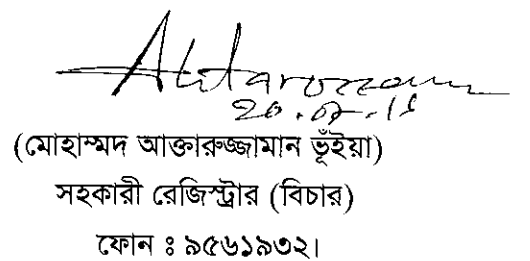 Aktaruzzaman
(মোহাম্মদ আক্তারুজ্জামান ভূঁইয়া)
সহকারী রেজিস্ট্রার (বিচার)
ফোন ঃ ৯৫৬১৯৩২।